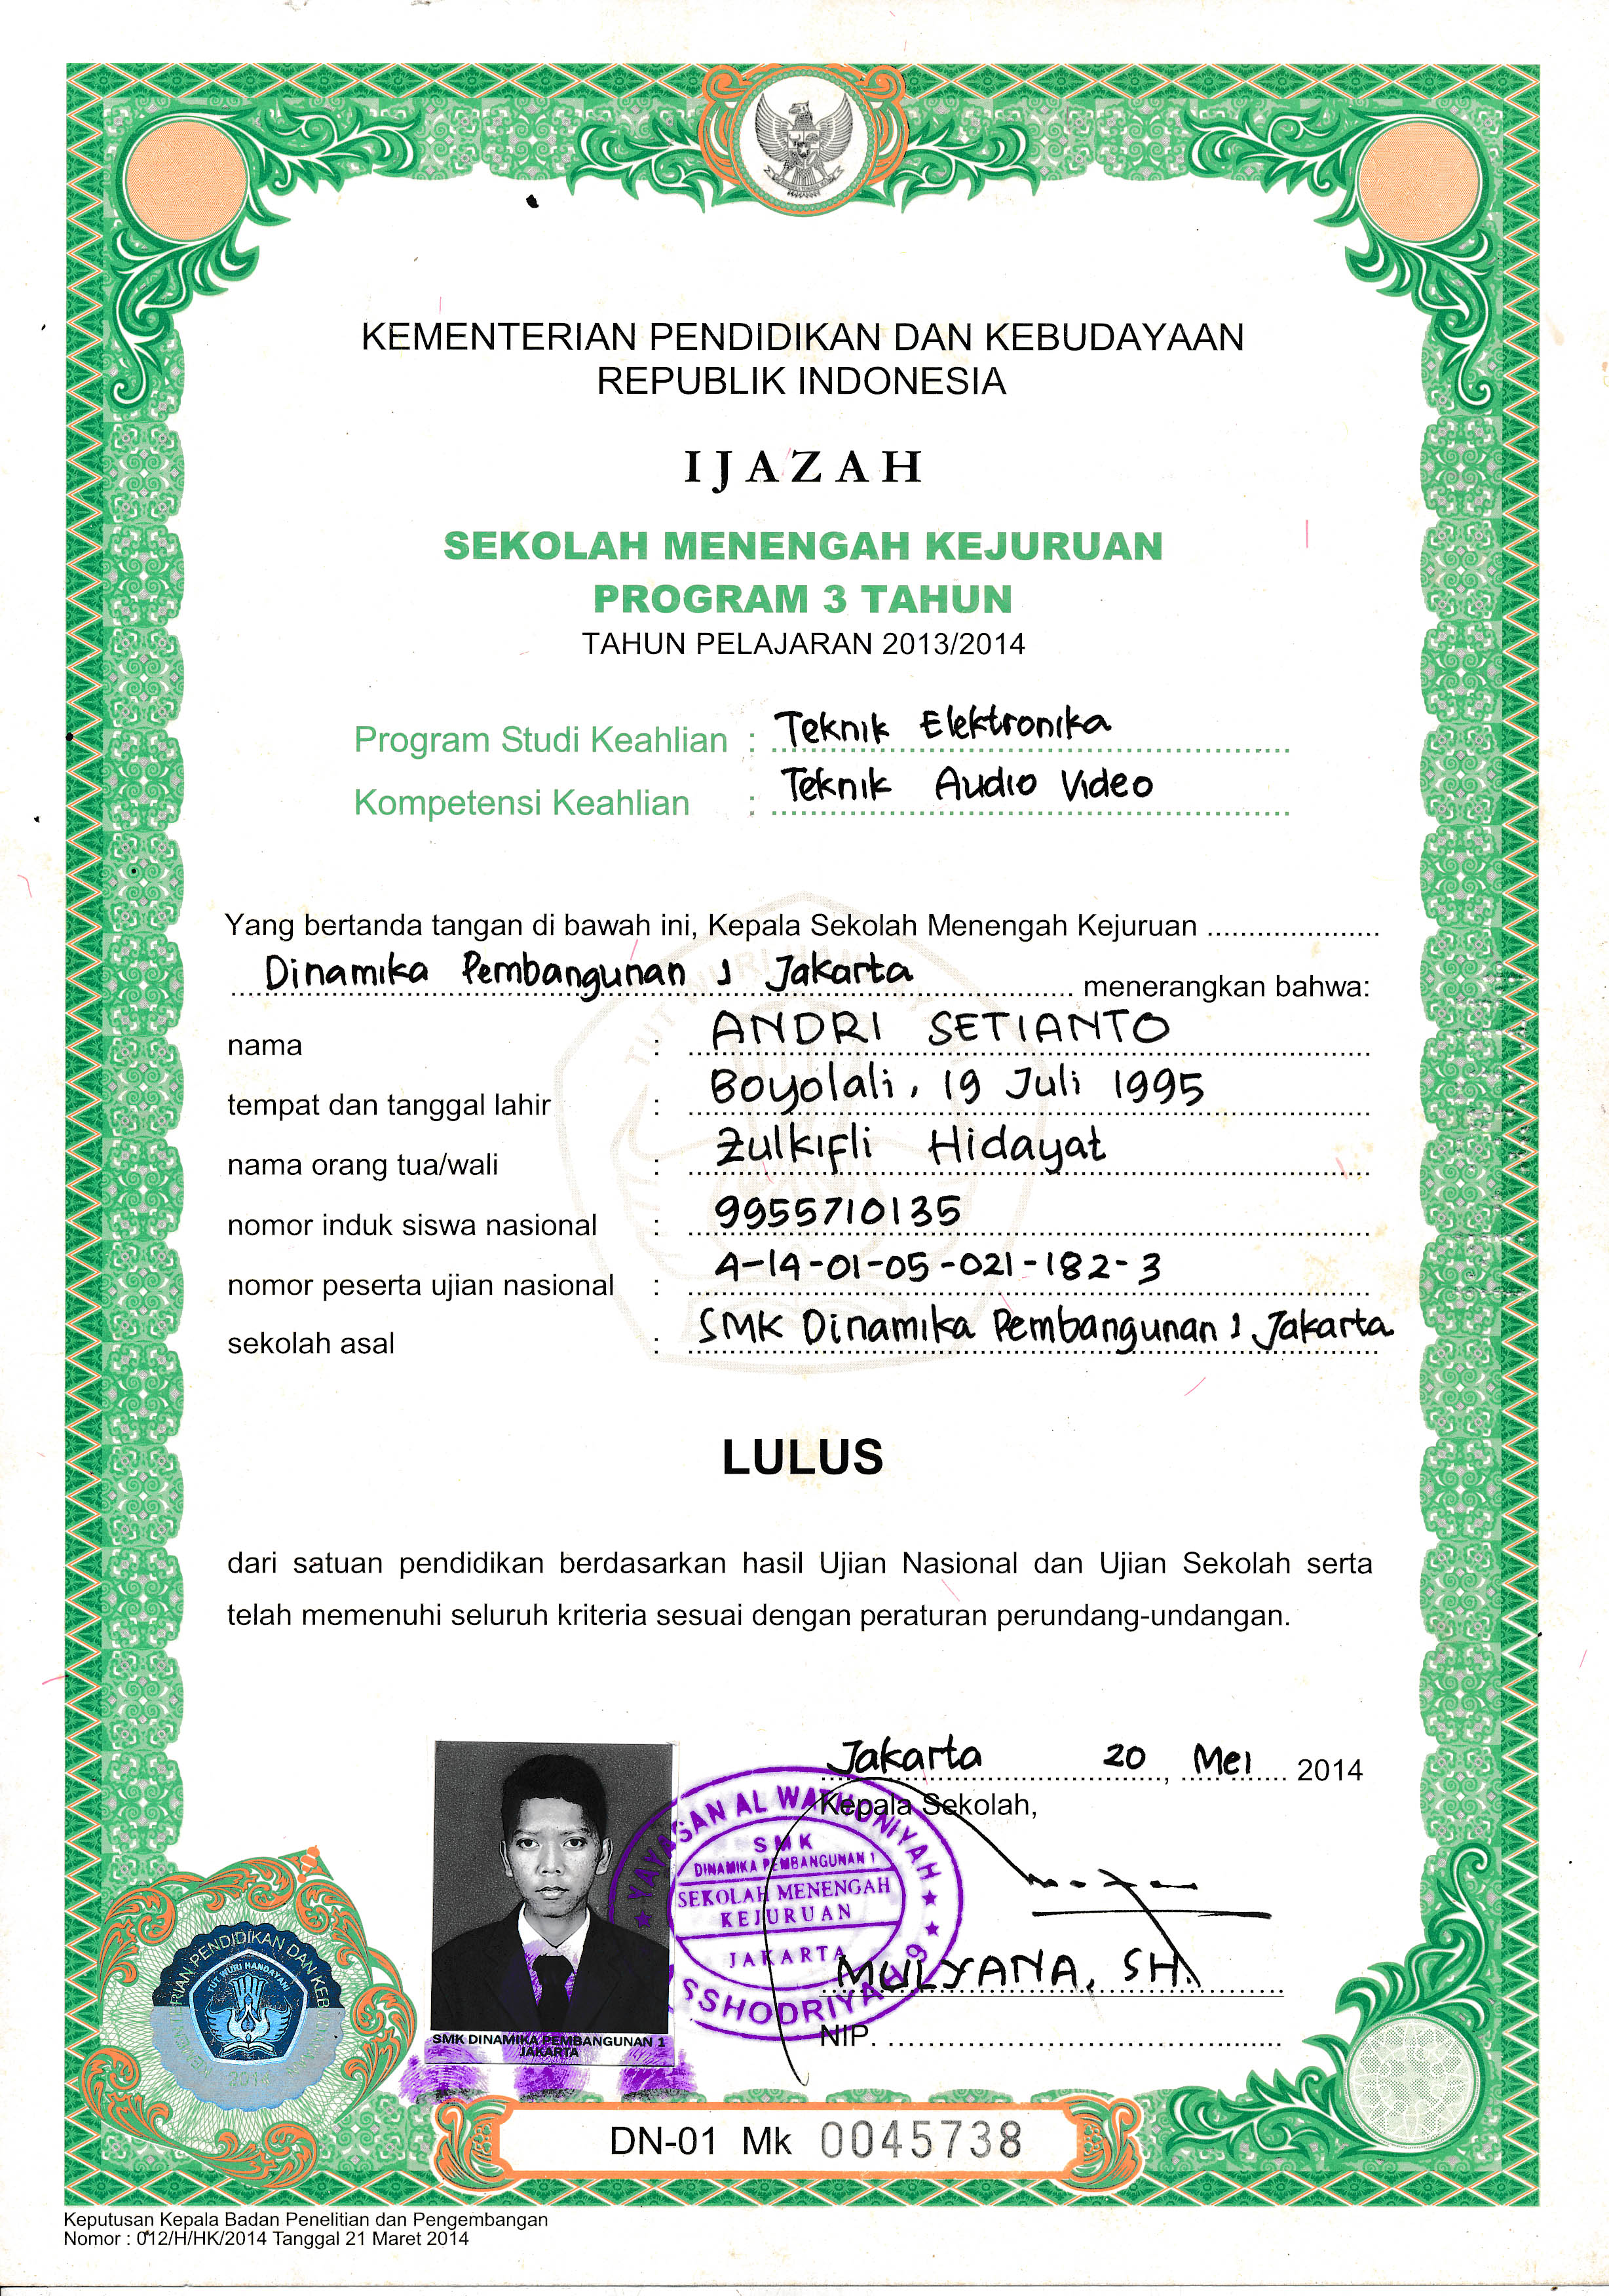 KEMENTERIAN PENDIDIKAN DAN KEBUDAYAAN
REPUBLIK INDONESIA
IJAZAH
SEKOLAH MENENGAH KEJURUAN
PROGRAM 3 TAHUN
TAHUN PELAJARAN 2013/2014
Program Studi Keahlian : Teknik Elektronika
Kompetensi Keahlian : Teknik Audio Video
Yang bertanda tangan di bawah ini, Kepala Sekolah Menengah Kejuruan
Dinamika Pembangunan 1 Jakarta menerangkan bahwa:
nama : ANDRI SETIANTO
tempat dan tanggal lahir : Boyolali, 19 Juli 1995
nama orang tua/wali : Zulkifli Hidayat
nomor induk siswa nasional : 9955710135
nomor peserta ujian nasional : 4-14-01-05-021-182-3
sekolah asal : SMK Dinamika Pembangunan 1 Jakarta
LULUS
dari satuan pendidikan berdasarkan hasil Ujian Nasional dan Ujian Sekolah serta
telah memenuhi seluruh kriteria sesuai dengan peraturan perundang-undangan.
Jakarta, 20 Mei 2014
Kepala Sekolah,
YAYASAN AL WATHONIYAH
SMK
DINAMIKA PEMBANGUNAN 1
SEKOLAH MENENGAH
KEJURUAN
JAKARTA
ASSHODRIYAH 9
MULYANA, SH.
NIP.
SMK DINAMIKA PEMBANGUNAN 1
JAKARTA
PENDIDIKAN DAN
TUT WURI HANDAYANI
2014
DN-01 Mk 0045738
Keputusan Kepala Badan Penelitian dan Pengembangan
Nomor : 012/H/HK/2014 Tanggal 21 Maret 2014